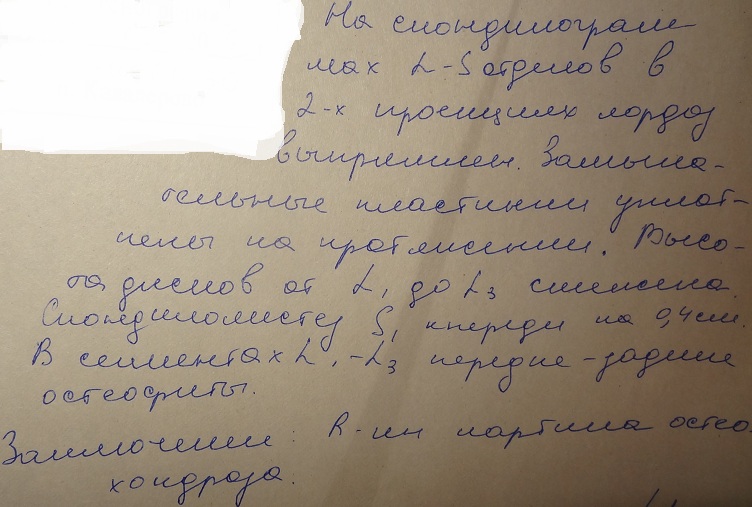 На спондилограм
мах L-S отделов в
2-х проекциях лордоз
выпрямлен. Замыка-
тельные пластинки уплот-
нены на протяжении. Высо-
та дисков от L₁ до L₃ снижена
Спондилолистез S₁ кпереди на 0,4 см.
В сегментах L₁-L₃ передне-задние
остеофиты.
Заключение: R-ки картина остео
хондроза.